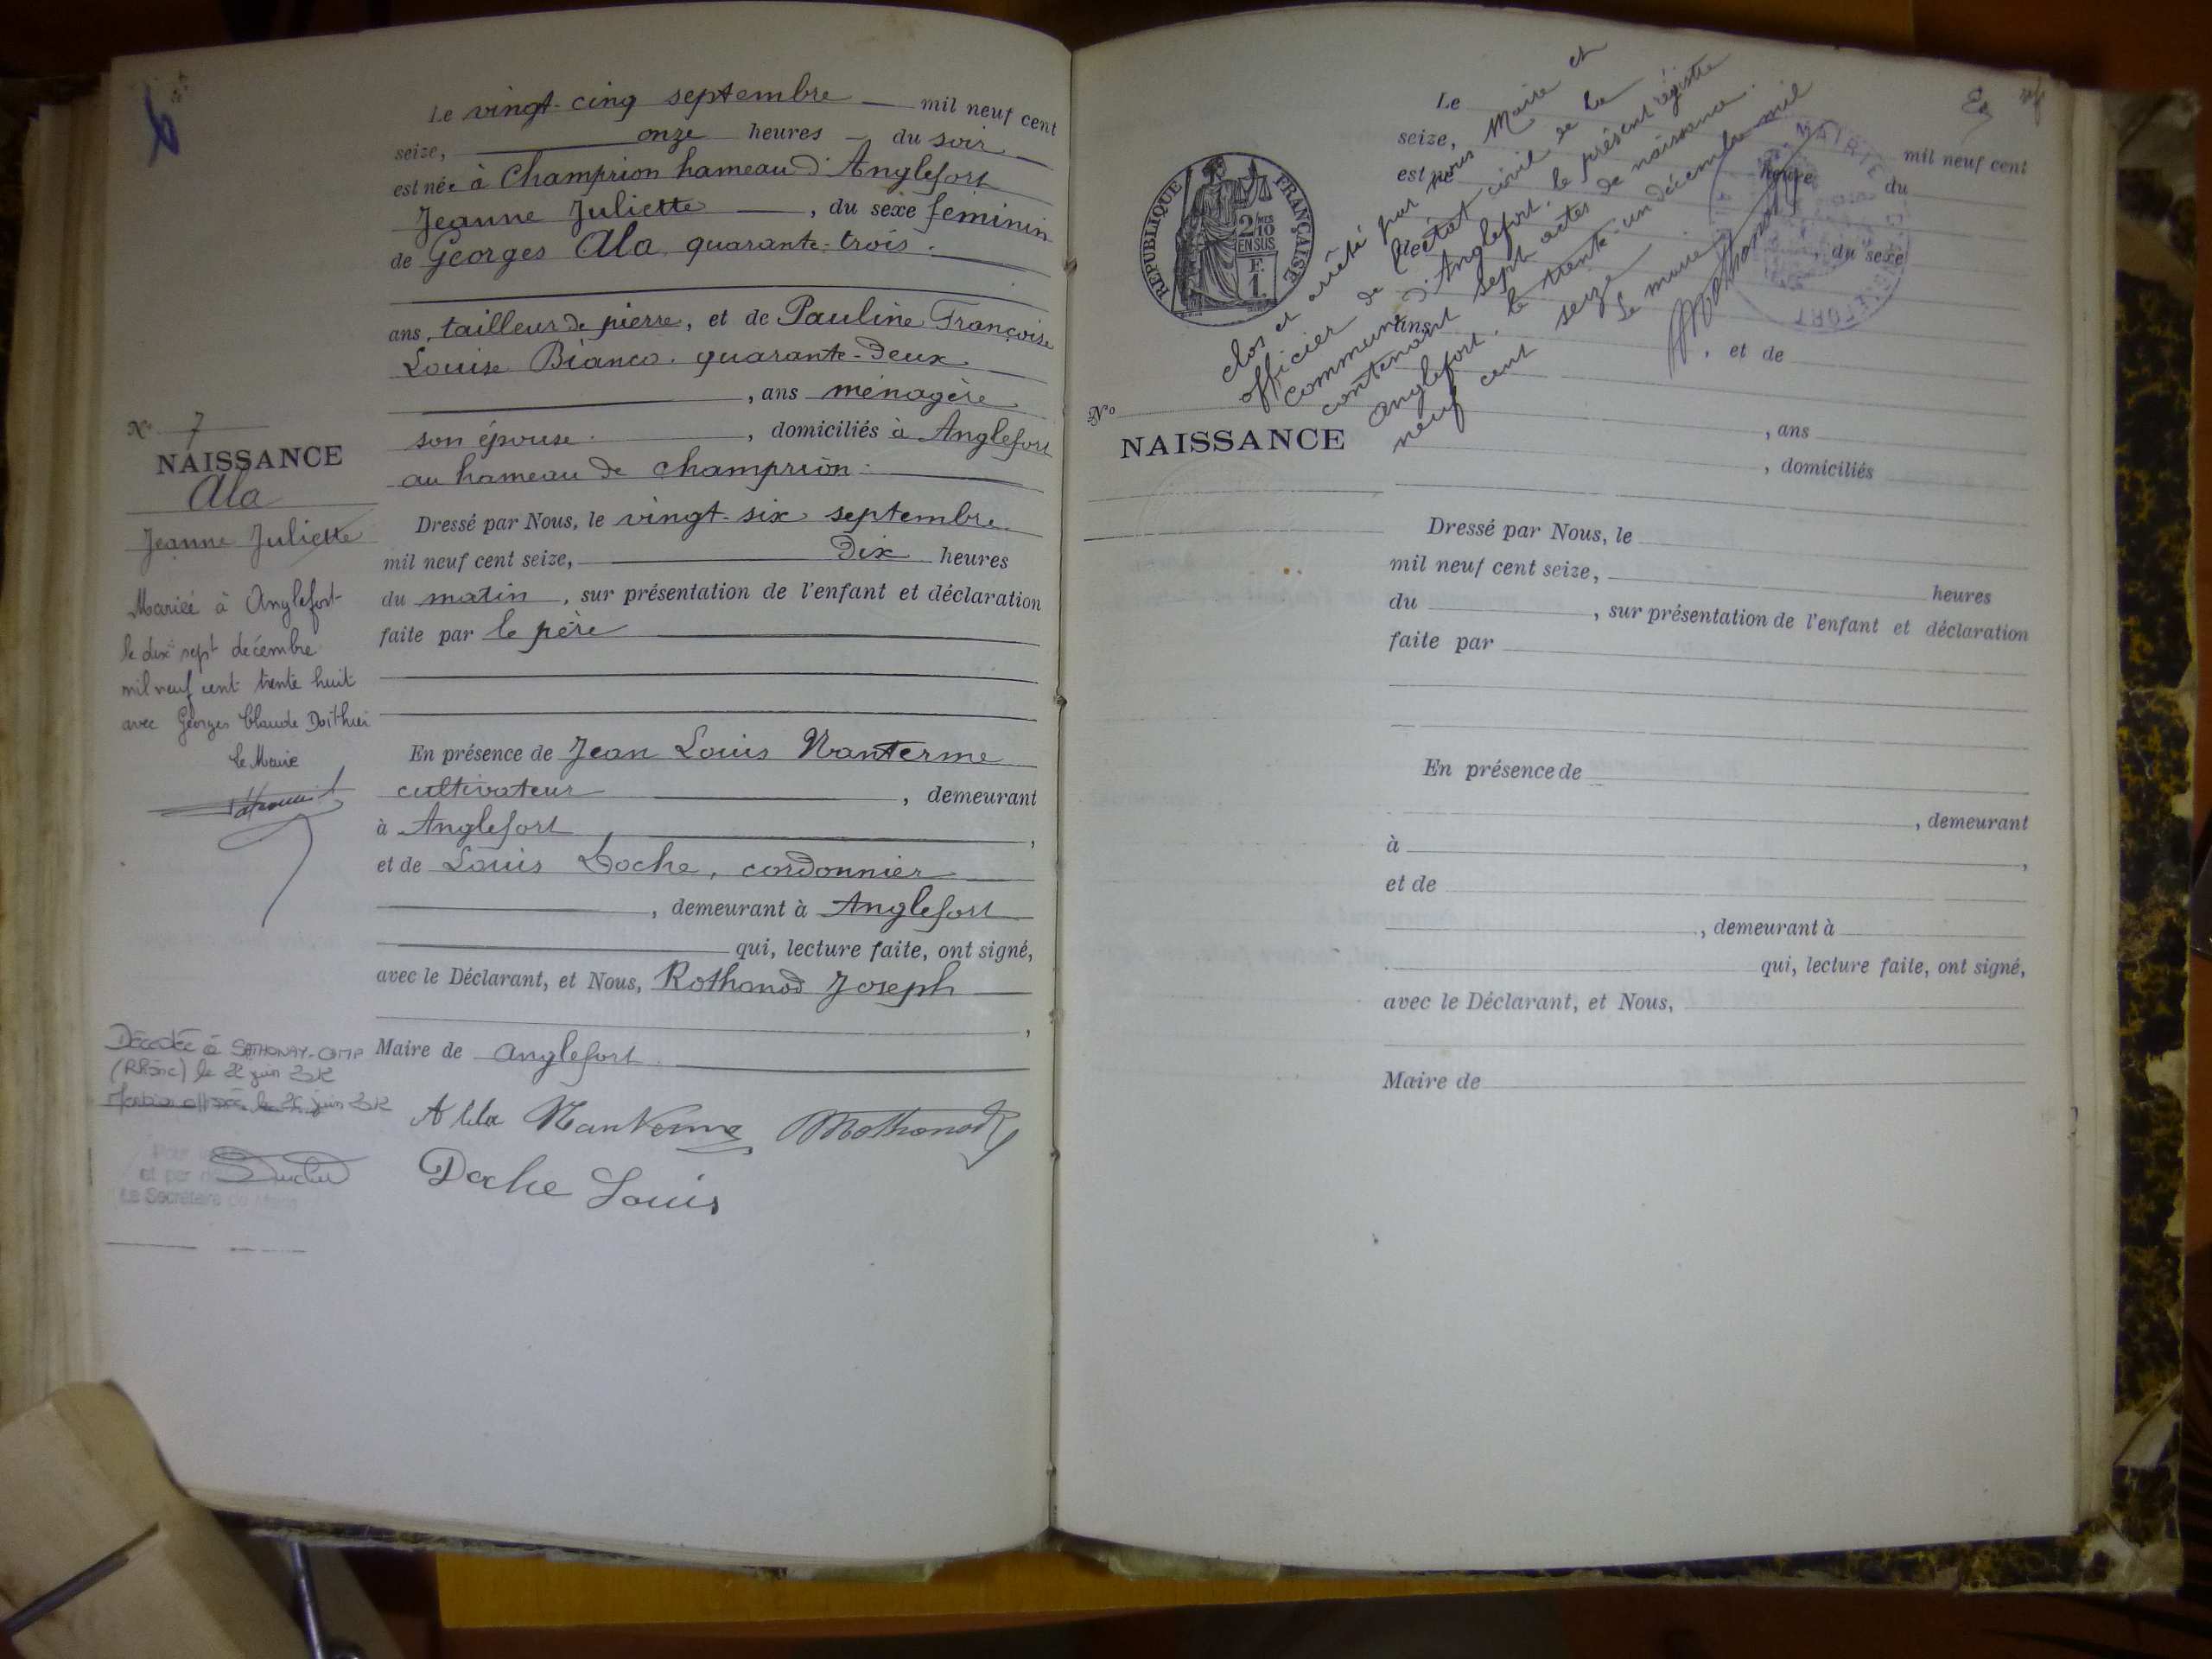 Le vingt-cinq septembre mil neuf cent
seize, onze heures du soir
est née à Champrion hameau d'Anglefort
Jeanne Juliette, du sexe féminin
de Georges Ala quarante-trois
ans, tailleur de pierre, et de Pauline Françoise
Louise Bianco quarante-deux
, ans ménagère
son épouse, domiciliés à Anglefort
au hameau de Champrion
N° 7
NAISSANCE
Ala
Jeanne Juliette
Mariée à Anglefort
le dix sept décembre
mil neuf cent trente huit
avec Georges Claude
le Maire
Décédée à SATHONAY-CAMP
(Rhône) le juin
juin
Le Secrétaire de Mairie
Dressé par Nous, le vingt-six septembre
mil neuf cent seize, Dix heures
du matin, sur présentation de l'enfant et déclaration
faite par le père
En présence de Jean Louis Nanterme
cultivateur, demeurant
à Anglefort,
et de Louis Doche, cordonnier
, demeurant à Anglefort
qui, lecture faite, ont signé,
avec le Déclarant, et Nous, Rothonod Joseph
,
Maire de Anglefort
Nanterme Rothonod
Doche Louis
RÉPUBLIQUE FRANÇAISE
2/10
EN SUS
F.
1.
clos et arrêté par nous Maire et
officier de l'état civil de la
commune d'Anglefort, le présent régistre
contenant sept actes de naissance.
Anglefort, le trente-un décembre mil
neuf cent seize
Le maire
Rothonod
MAIRIE
Le mil neuf cent
seize, heure du
est né
, du sexe
ans, et de
, ans
, domiciliés
N°
NAISSANCE
Dressé par Nous, le
mil neuf cent seize, heures
du , sur présentation de l'enfant et déclaration
faite par
En présence de
, demeurant
à ,
et de
, demeurant à
qui, lecture faite, ont signé,
avec le Déclarant, et Nous,
Maire de